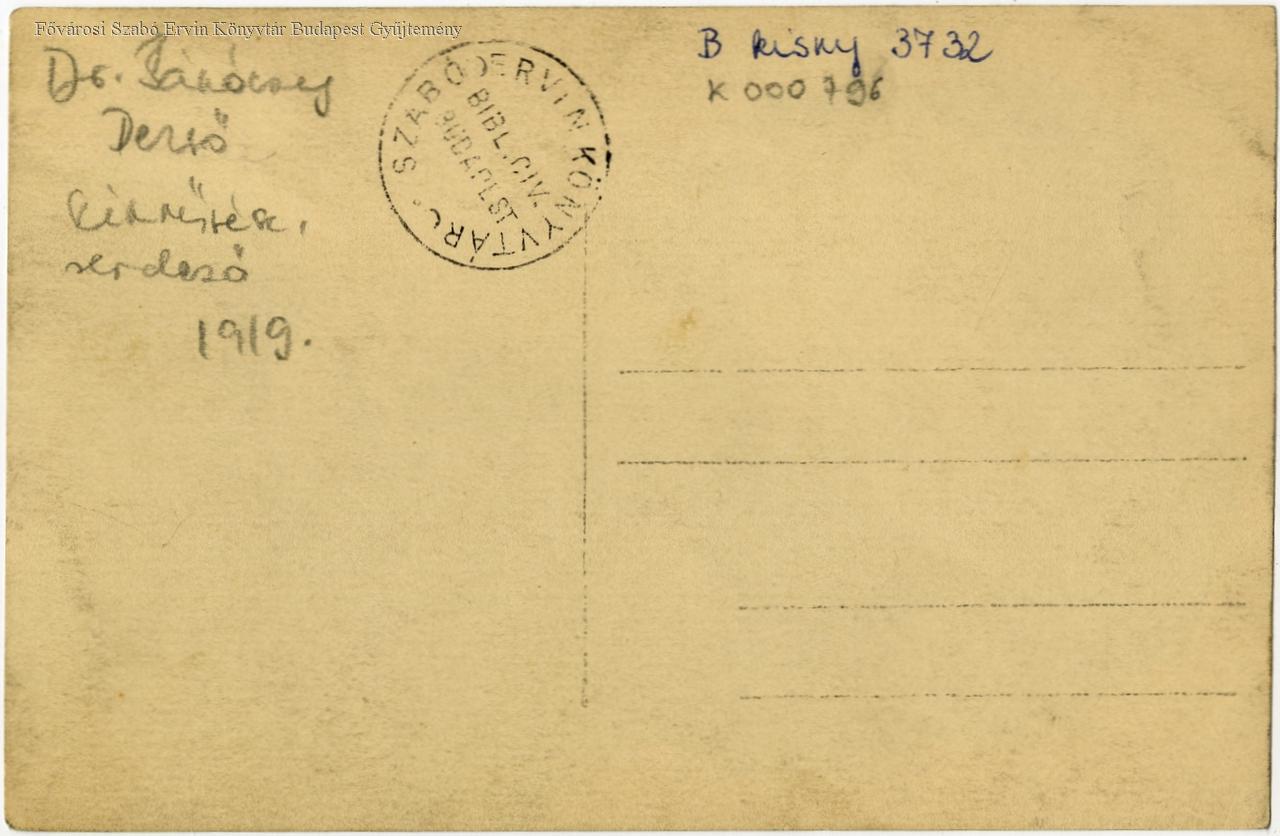 Fővárosi Szabó Ervin Könyvtár Budapest Gyűjtemény
Dr. Rákóczy
Dezső
1919.
SZABÓ ERVIN KÖNYVTÁR
BIBL. CIV.
BUDAPEST
B kisny 3732
K 000 796